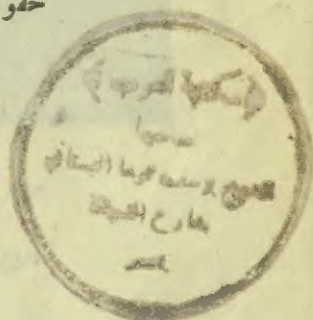 حقو
﴿ مكتبة العرب ﴾
صاحبها
الشيخ يوسف توما البستاني
شارع الفجالة
بمصر